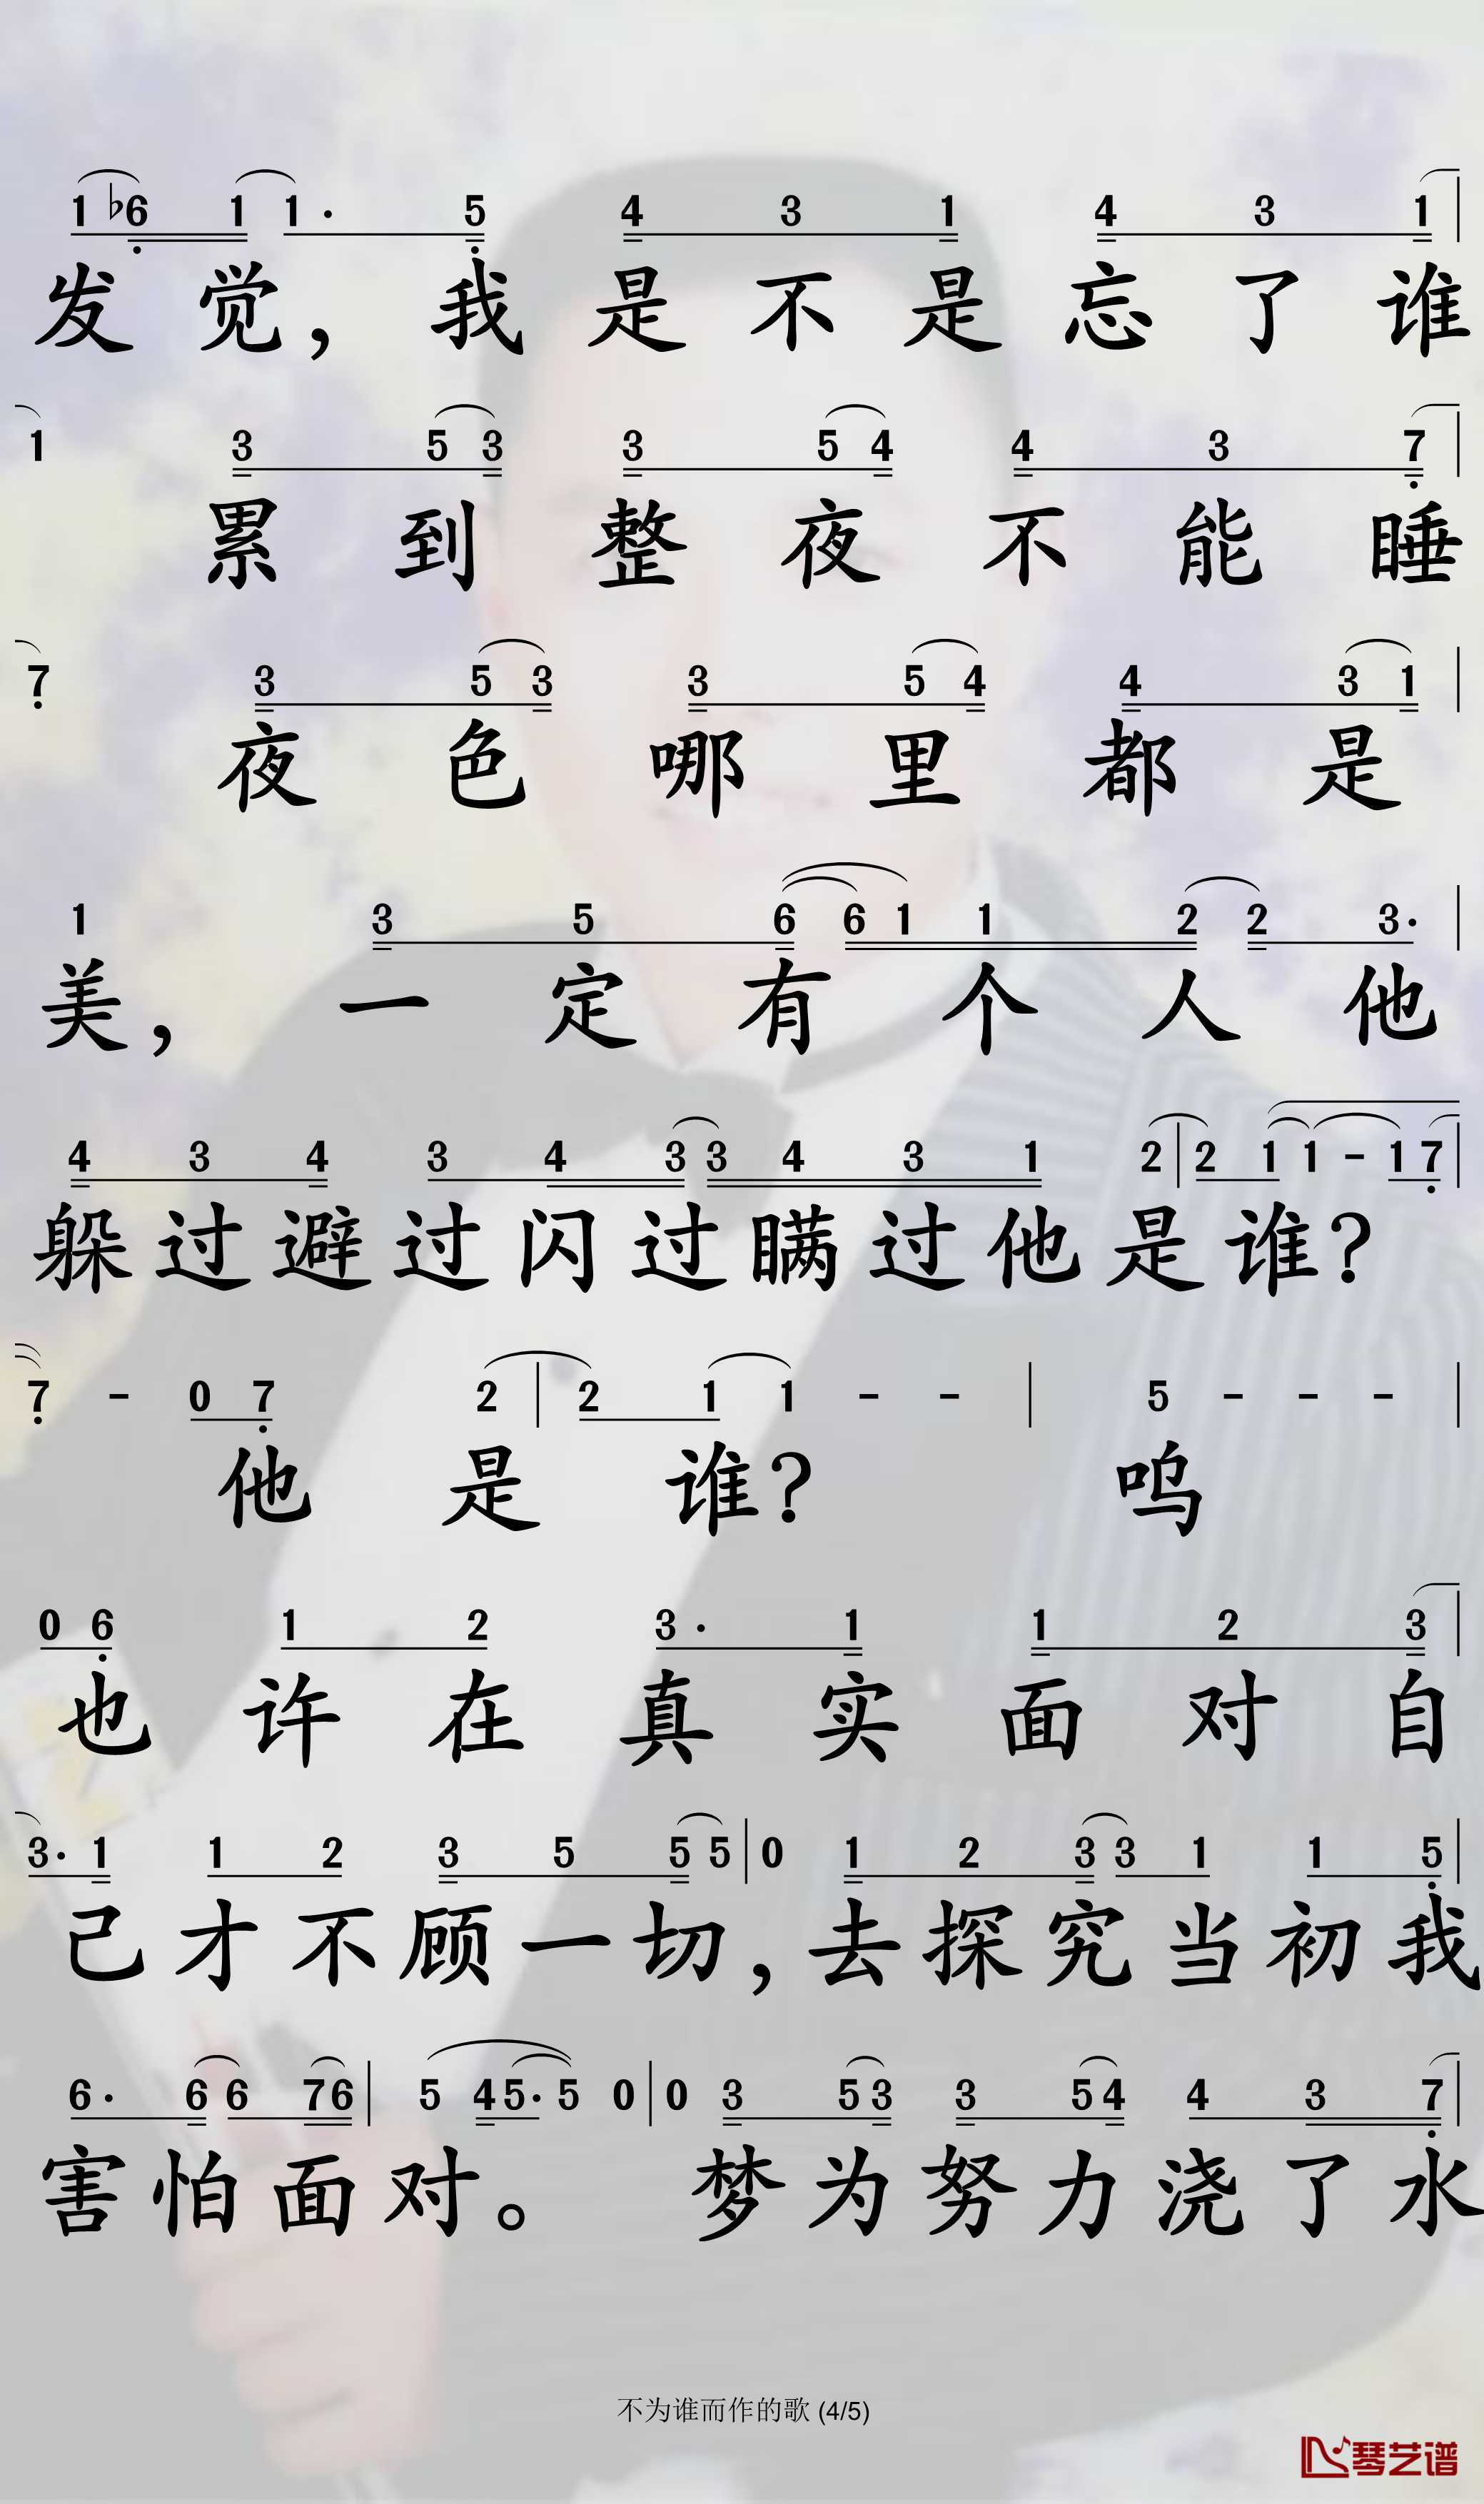 1 ♭6 1 1· 5 4 3 1 4 3 1
发觉，我是不是忘了谁
1 3 5 3 3 5 4 4 3 7
累到整夜不能睡
7 3 5 3 3 5 4 4 3 1
夜色哪里都是
1 3 5 6 6 1 1 2 2 3·
美，一定有个人他
4 3 4 3 4 3 3 4 3 1 2 | 2 1 1 - 1 7
躲过避过闪过瞒过他是谁？
7 - 0 7 2 | 2 1 1 - - | 5 - - -
他是谁？呜
0 6 1 2 3· 1 1 2 3
也许在真实面对自
3· 1 1 2 3 5 5 5 | 0 1 2 3 3 1 1 5
己才不顾一切，去探究当初我
6· 6 6 7 6 | 5 4 5· 5 0 | 0 3 5 3 3 5 4 4 3 7
害怕面对。梦为努力浇了水
不为谁而作的歌 (4/5)
琴艺谱